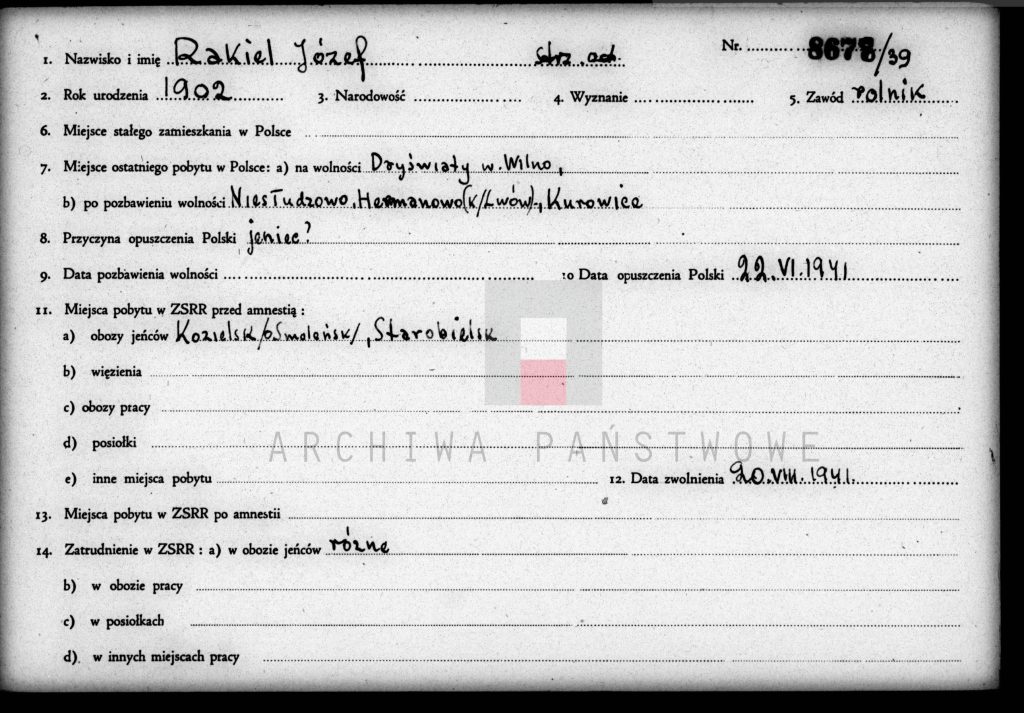 1. Nazwisko i imię Rakiel Józef strz. Nr. 8678/39
2. Rok urodzenia 1902 3. Narodowość 4. Wyznanie 5. Zawód rolnik
6. Miejsce stałego zamieszkania w Polsce
7. Miejsce ostatniego pobytu w Polsce: a) na wolności Dryświaty w. Wilno,
b) po pozbawieniu wolności Niesłudzowo, Hermanowo (k/Lwów), Kurowice
8. Przyczyna opuszczenia Polski jeniec?
9. Data pozbawienia wolności 10 Data opuszczenia Polski 22.VI.1941
11. Miejsca pobytu w ZSRR przed amnestią :
a) obozy jeńców Kozielsk /oSmoleńsk/, Starobielsk
b) więzienia
c) obozy pracy
d) posiołki
ARCHIWA PAŃSTWOWE
e) inne miejsca pobytu 12. Data zwolnienia 20.VIII.1941.
13. Miejsca pobytu w ZSRR po amnestii
14. Zatrudnienie w ZSRR : a) w obozie jeńców różne
b) w obozie pracy
c) w posiołkach
d) w innych miejscach pracy